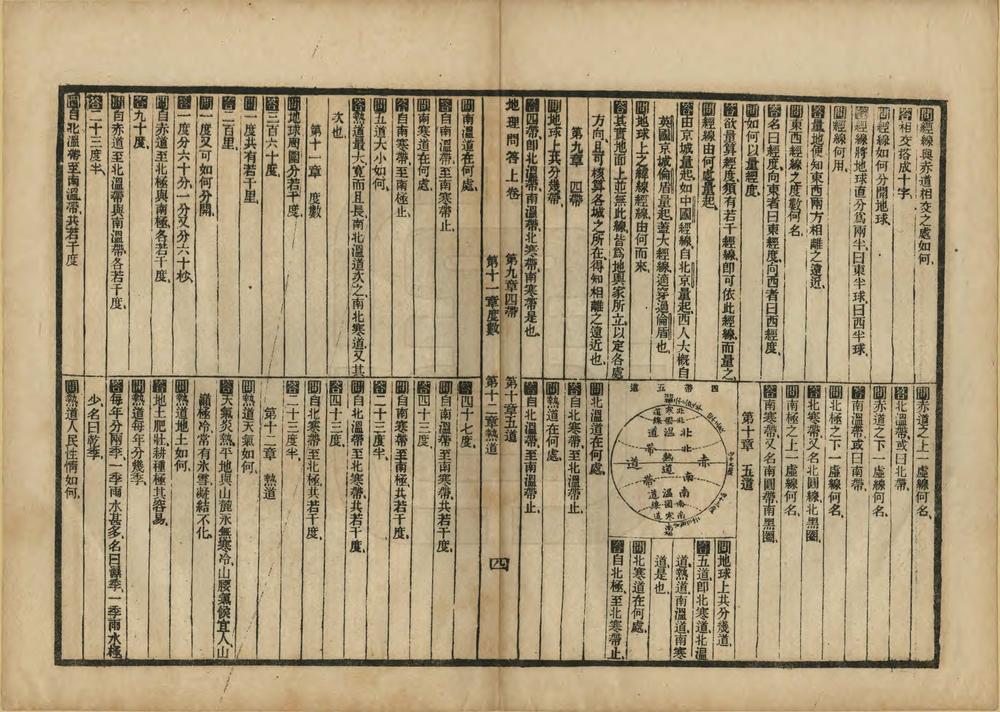 問經線與赤道相交之處如何、
答相交搭成十字、
問經線如何分開地球、
答經線將地球直分爲兩半、曰東半球、曰西半球、
問經線何用、
答量地便知東西兩方相離之遠近、
問東西經線之度數何名、
答名曰經度、向東者曰東經度、向西者曰西經度、
問如何以量經度、
答欲量算經度、須有若干經線、卽可依此經線而量之、
問經線由何處量起、
答由京城量起、如中國經線、自北京量起、西人大槪自
英國京城倫盾量起、蓋大經線適穿過倫盾也、
問地球上之緯線經線、由何而來、
答其實地面上並無此線、皆爲地輿家所立、以定各處
方向、且可核算各城之所在、得知相離之遠近也、
第九章　四帶
問地球上共分幾帶、
答四帶、卽北溫帶、南溫帶、北寒帶、南寒帶是也、
問赤道之上一虛線何名、
答北溫帶、或曰北帶、
問赤道之下一虛線何名、
答南溫帶、或曰南帶、
問北極之下一虛線何名、
答北寒帶、又名北圓線、北黑圈、
問南極之上一虛線何名、
答南寒帶、又名南圓帶、南黑圈、
第十章　五道
四帶五道
赤道
問地球上共分幾道、
答五道、卽北寒道、北溫
道、熱道、南溫道、南寒
道是也、
問北寒道在何處、
答自北極、至北寒帶止、
問北溫道在何處、
答自北寒帶、至北溫帶止、
問熱道在何處、
答自北溫帶、至南溫帶止、
地理問答上卷
第九章四帶
第十章五道
第十一章度數
第十二章熱道
四
問南溫道在何處、
答自南溫帶、至南寒帶止、
問南寒道在何處、
答自南寒帶、至南極止、
問五道大小如何、
答熱道最大、寬而且長、南北溫道次之、南北寒道、又其
次也、
第十一章　度數
問地球周圍分若干度、
答三百六十度、
問一度共有若干里、
答二百里、
問一度又可如何分開、
答一度分六十分、一分又分六十秒、
問自赤道至北極與南極、各若干度、
答九十度、
問自赤道至北溫帶與南溫帶、各若干度、
答二十三度半、
問自北溫帶至南溫帶、共若干度、
答四十七度、
問自南溫帶至南寒帶、共若干度、
答四十三度、
問自南寒帶至南極、共若干度、
答二十三度半、
問自北溫帶至北寒帶、共若干度、
答四十三度、
問自北寒帶至北極、共若干度、
答二十三度半、
第十二章　熱道
問熱道天氣如何、
答天氣炎熱、平地與山麓、永無寒冷、山腰氣候宜人、山
巓極冷、常有氷雪凝結不化、
問熱道地土如何、
答地土肥壯、耕種極其容易、
問熱道每年分幾季、
答每年分兩季、一季雨水甚多、名曰潮季、一季雨水極
少、名曰乾季、
問熱道人民性情如何、